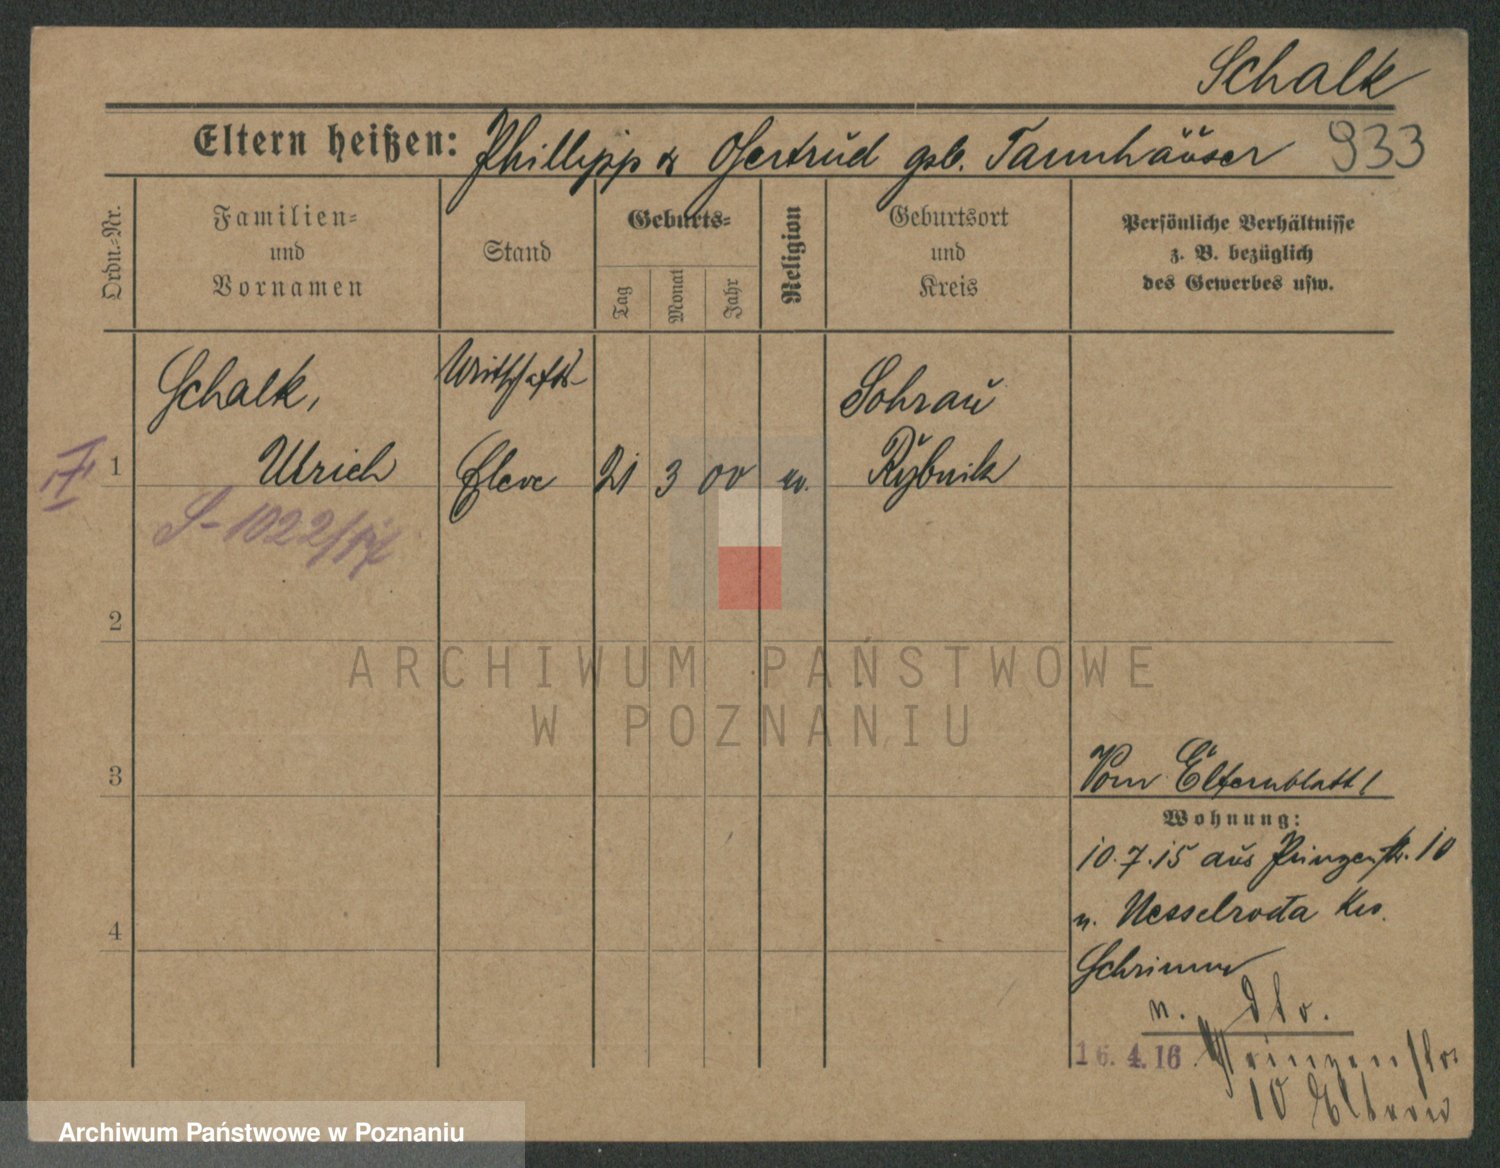 Schalk
Eltern heißen: Phillipp & Gertrud geb. Tannhäuser 933
Ordn.-Nr.
Familien-
und
Vornamen
Stand
Geburts-
Tag
Monat
Jahr
Religion
Geburtsort
und
Kreis
Persönliche Verhältnisse
z. B. bezüglich
des Gewerbes usw.
Schalk, Wirtschafts- Sohrau
1 Ulrich Eleve 21 3 00 Rybnik
S-1022/
2
ARCHIWUM PAŃSTWOWE
W POZNANIU
3
Vom Elternblatt!
Wohnung:
10.7.15 aus Prinzenstr. 10
n. Nesselroda Krs.
4
Schrimm
n. dto.
16. 4. 16. Prinzenstr.
10 Eltern
Archiwum Państwowe w Poznaniu